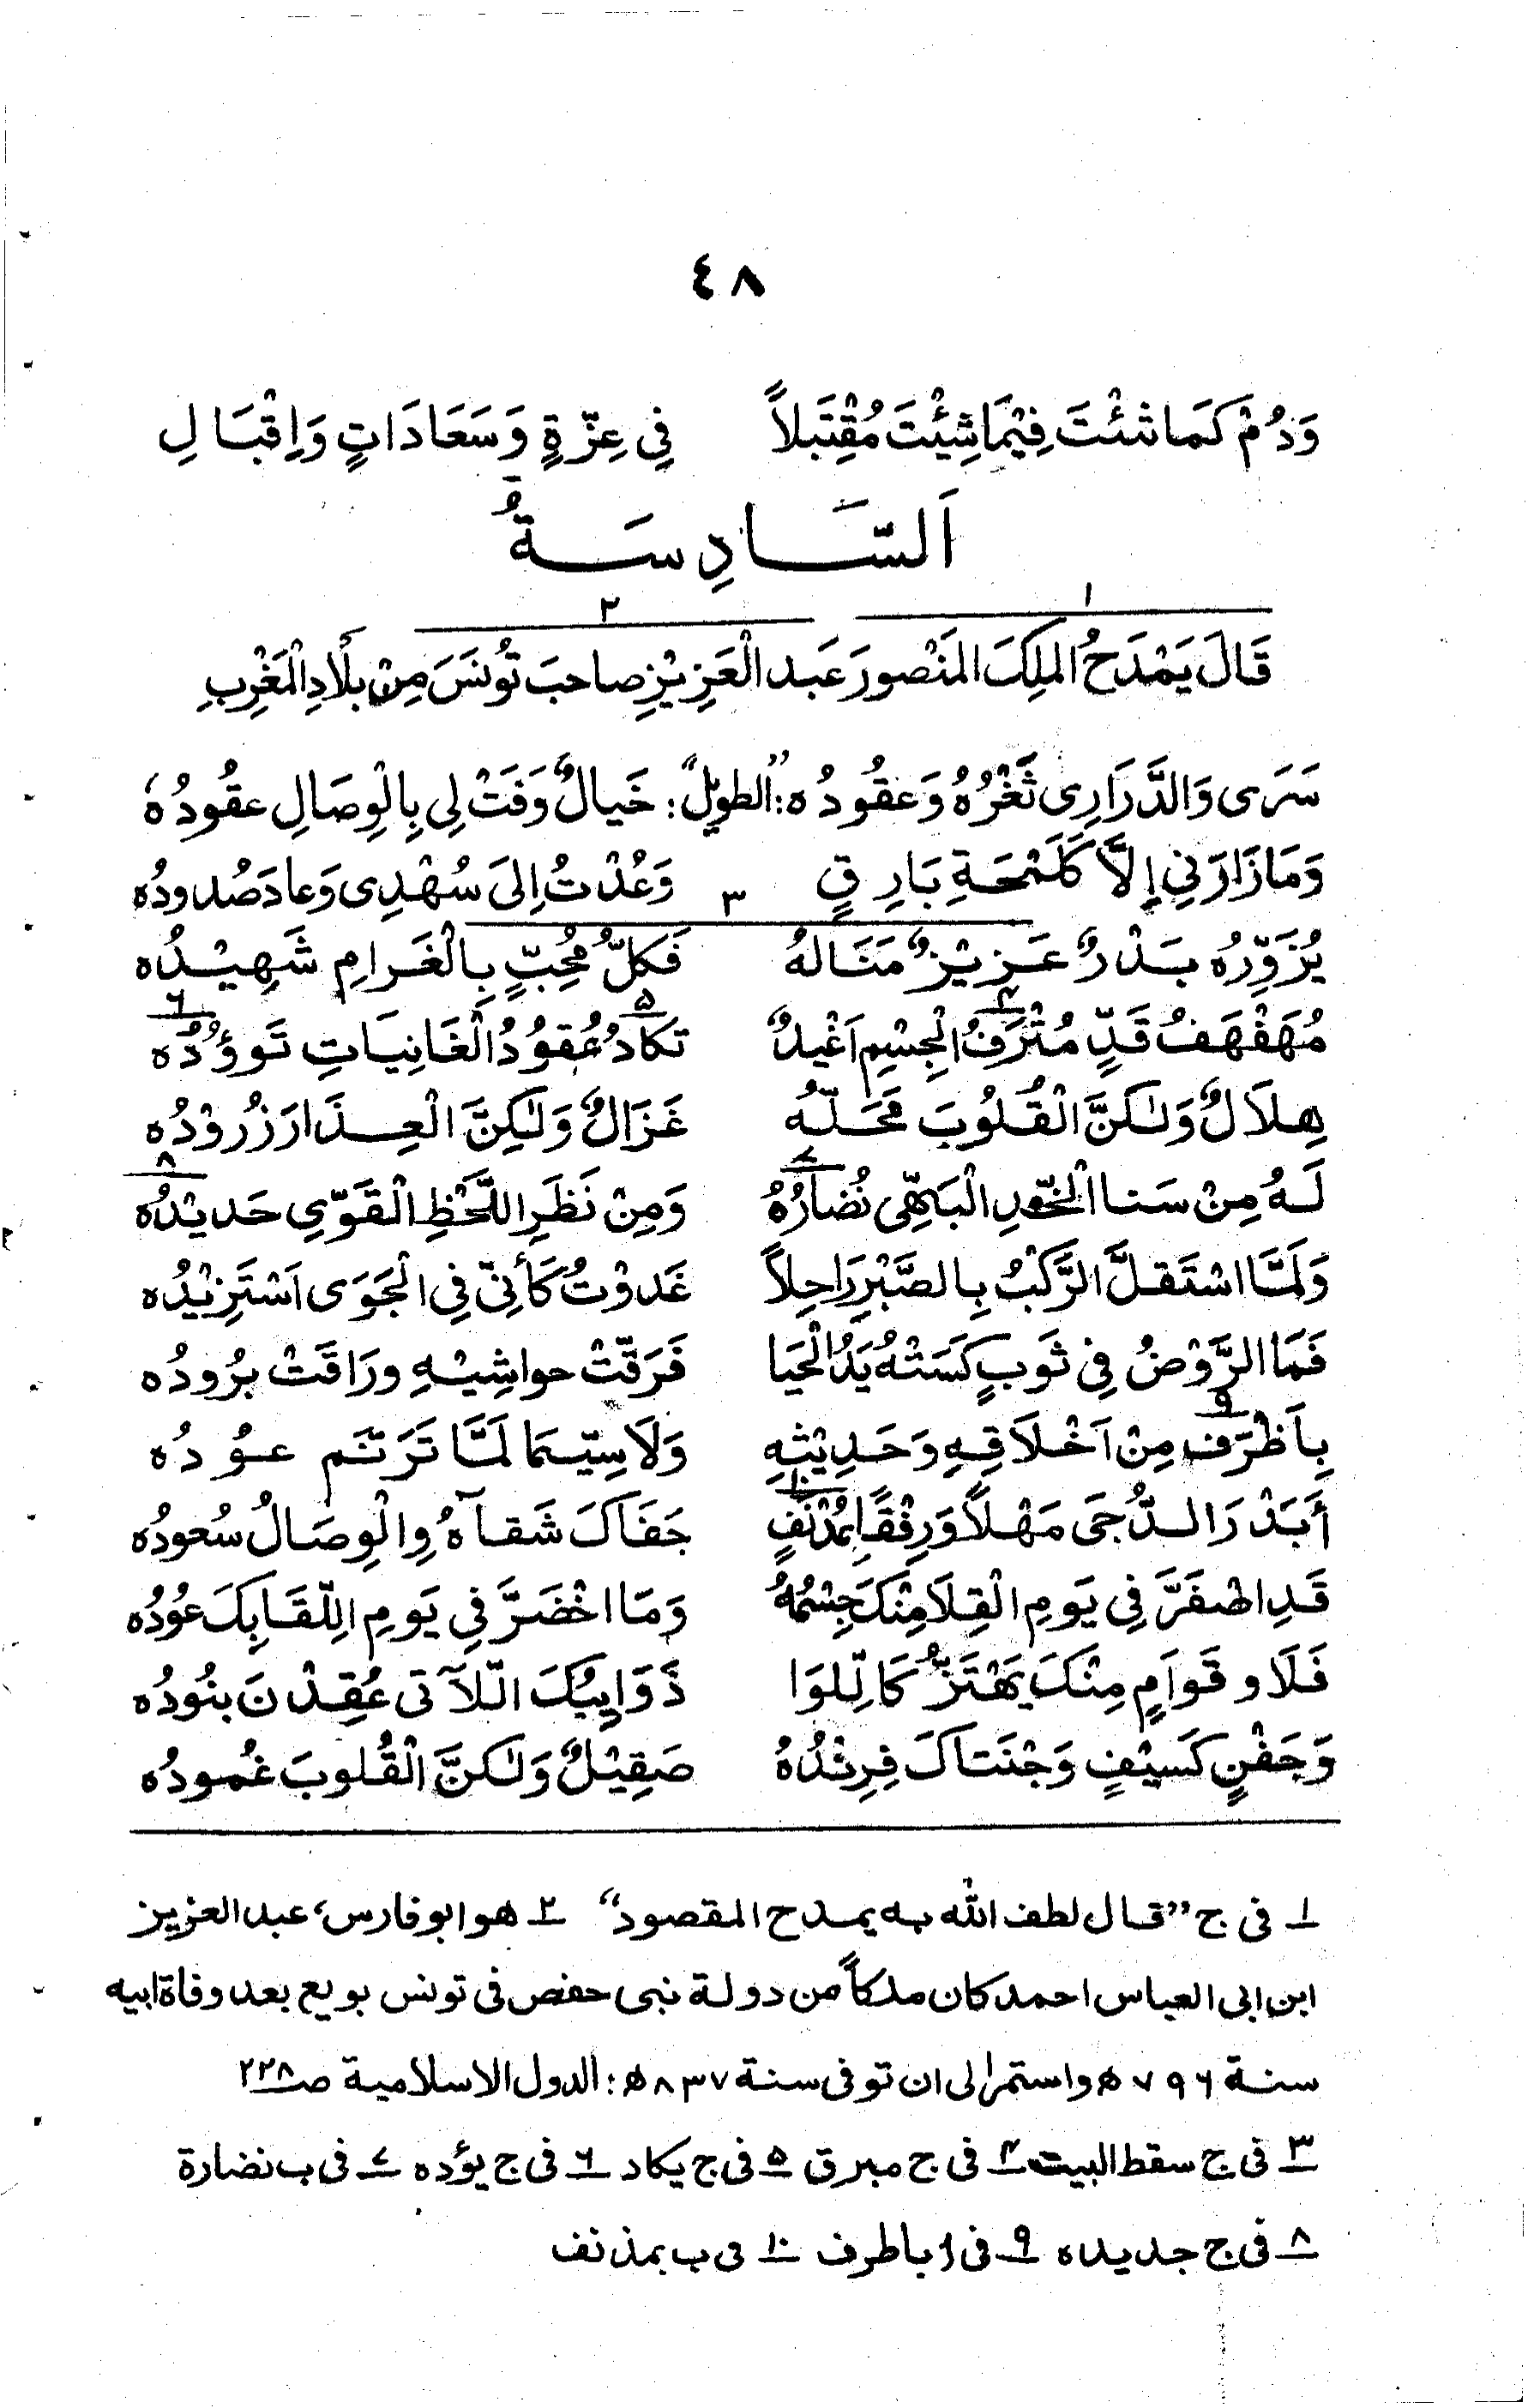 ٤٨
وَدُمْ كَمَا شئْتَ فِيْمَا شِيْتَ مُقْتَبلاً في عِزّةٍ وَسَعَادَاتٍ وَاِقْبَالِ
اَلسَّادِسَةُ
١ ٢
قَالَ يَمْدَحُ الملِكَ المَنْصورَ عَبد الْعَزِيْزِ صاحبَ تُونسَ مِنْ بلَادِ الْمَغْرِبِ
سَرَى وَالدَّرَارِى ثَغْرُهُ وَعقُودُه :"الطويلُ": خَيالٌ وَفَتْ لِي بِالْوِصَالِ عقُودُهُ
وَمَا زَارَنِي إِلاَّ كَلَمْحَةِ بَارِقٍ وَعُدْتُ اِلىَ سُهْدِى وَعادَ صُدودُه
٣
يُزَوِّرُه بَدْرٌ عَزِيْزٌ مَنَالهُ فَكلُّ مُحِبٍّ بِالْغَرامِ شَهِيْدُه
مُهَفْهَفُ قَدٍّ مُتْرَفُ الْجِسْمِ اَغْيدٌ تكَادُ عُقوُدُ الْغَانِيَاتِ تَوؤُدُه
هِلَالٌ وَلٰكنَّ الْقُلوُبَ مَحَلّهُ غَزَالٌ وَلٰكِنَّ الْعِذَارَ زُروْدُه
لَهُ مِنْ سَنا الخَّودِ الْبَهِّى نُضَارُهُ وَمِنْ نَظَرِ اللَّحْظِ الْقَوِّي حَديْدُه
وَلَمَّا اسْتَقلَّ الرَّكْبُ بِالصَّبْرِ رَاحِلاً غَدوْتُ كَأَنِّي فِي الْجَوَى اَسْتَزِيْدُه
فَمَا الرَّوْضُ فِي ثَوبٍ كَسَتْهُ يَدُ الْحَيَا فَرَقّتْ حواشِيْهِ ورَاقَتْ برُودُه
بِاَظْرَف مِنْ اَخْلَاقِهِ وَحَدِيْثِهِ وَلَا سِيّمَا لَمَّا تَرَنَّم عوُدُه
أَبَدْرَ الدُّجَى مَهْلاً وَرِفْقًا بِمُدْنَفٍ جَفَاكَ شَقآهُ وِالْوِصَالُ سُعودُه
قَدِ اصْفَرَّ فِي يَومِ الْقِلَا مِنْكَ جِسْمُهُ وَمَا اخْضَرَّ فِي يَومِ اللِّقَا بِكَ عوُدُه
فَلَا و قَوَامٍ مِنْكَ يَهْتَزُّ كَاللِّوَا ذَوَايِبُكَ الّلآتى عُقِدْنَ بنُودُه
وَجَفْنٍ كَسَيْفٍ وَجْنَتاكَ فِرِنْدُهُ صَقِيْلٌ وَلٰكنَّ الْقُلوبَ غُمودُه
١ـ فى ج "قال لطف الله به يمدح المقصود" ٢ـ هو ابو فارس، عبد العزيز
ابن ابى العباس احمد كان ملكاً من دولة بنى حفص فى تونس بويع بعد وفاة ابيه
سنة ٧٩٦ھ واستمر الى ان توفى سنة ٨٣٧ھ: الدول الاسلامية صـ٢٢٨
٣ـ فى ج سقط البيت ٤ـ فى ج مبرق ٥ـ فى ج يكاد ٦ـ فى ج يؤده ٧ـ فى ب نضارة
٨ـ فى ج جديده ٩ـ فى أ باطرف ١٠ـ فى ب بمذنف